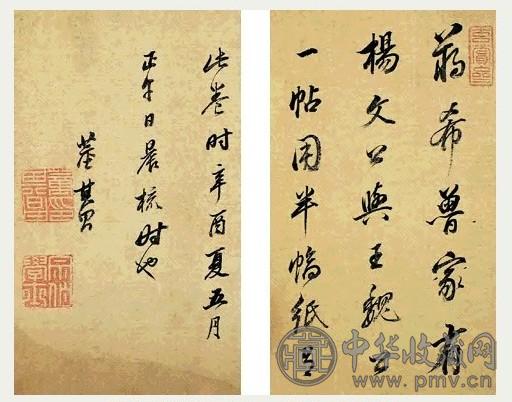 玄賞齋
蔣希魯家有
楊文公與王魏公
一帖用半幅紙有
此卷时辛酉夏五月
正午日晨梳时也
董其昌
宗伯學士
中华收藏网
www.pmv.cn